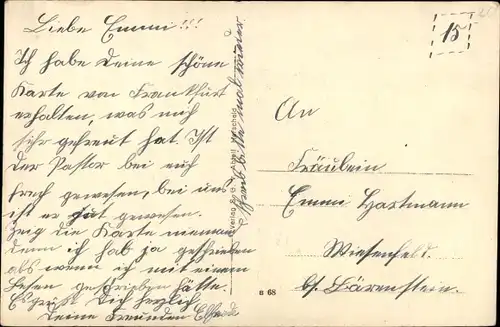 Liebe Emmi!!!
Ich habe Deine schöne
Karte von Frankfurt
erhalten, was mich
sehr gefreut hat. Ist
der Pastor bei euch
frech gewesen, bei uns
ist er gut gewesen.
Zeig die Karte niemand
denn ich hab ja geschrieben
als wenn ich mit einem
Besen geschrieben hätte.
Es grüßt Dich herzlich
Deine Freundin
bitte mal wieder
15
An
Fräulein
Emmi Hastmann
Wiesenfeld.
bs. Bärenstein.
B 68